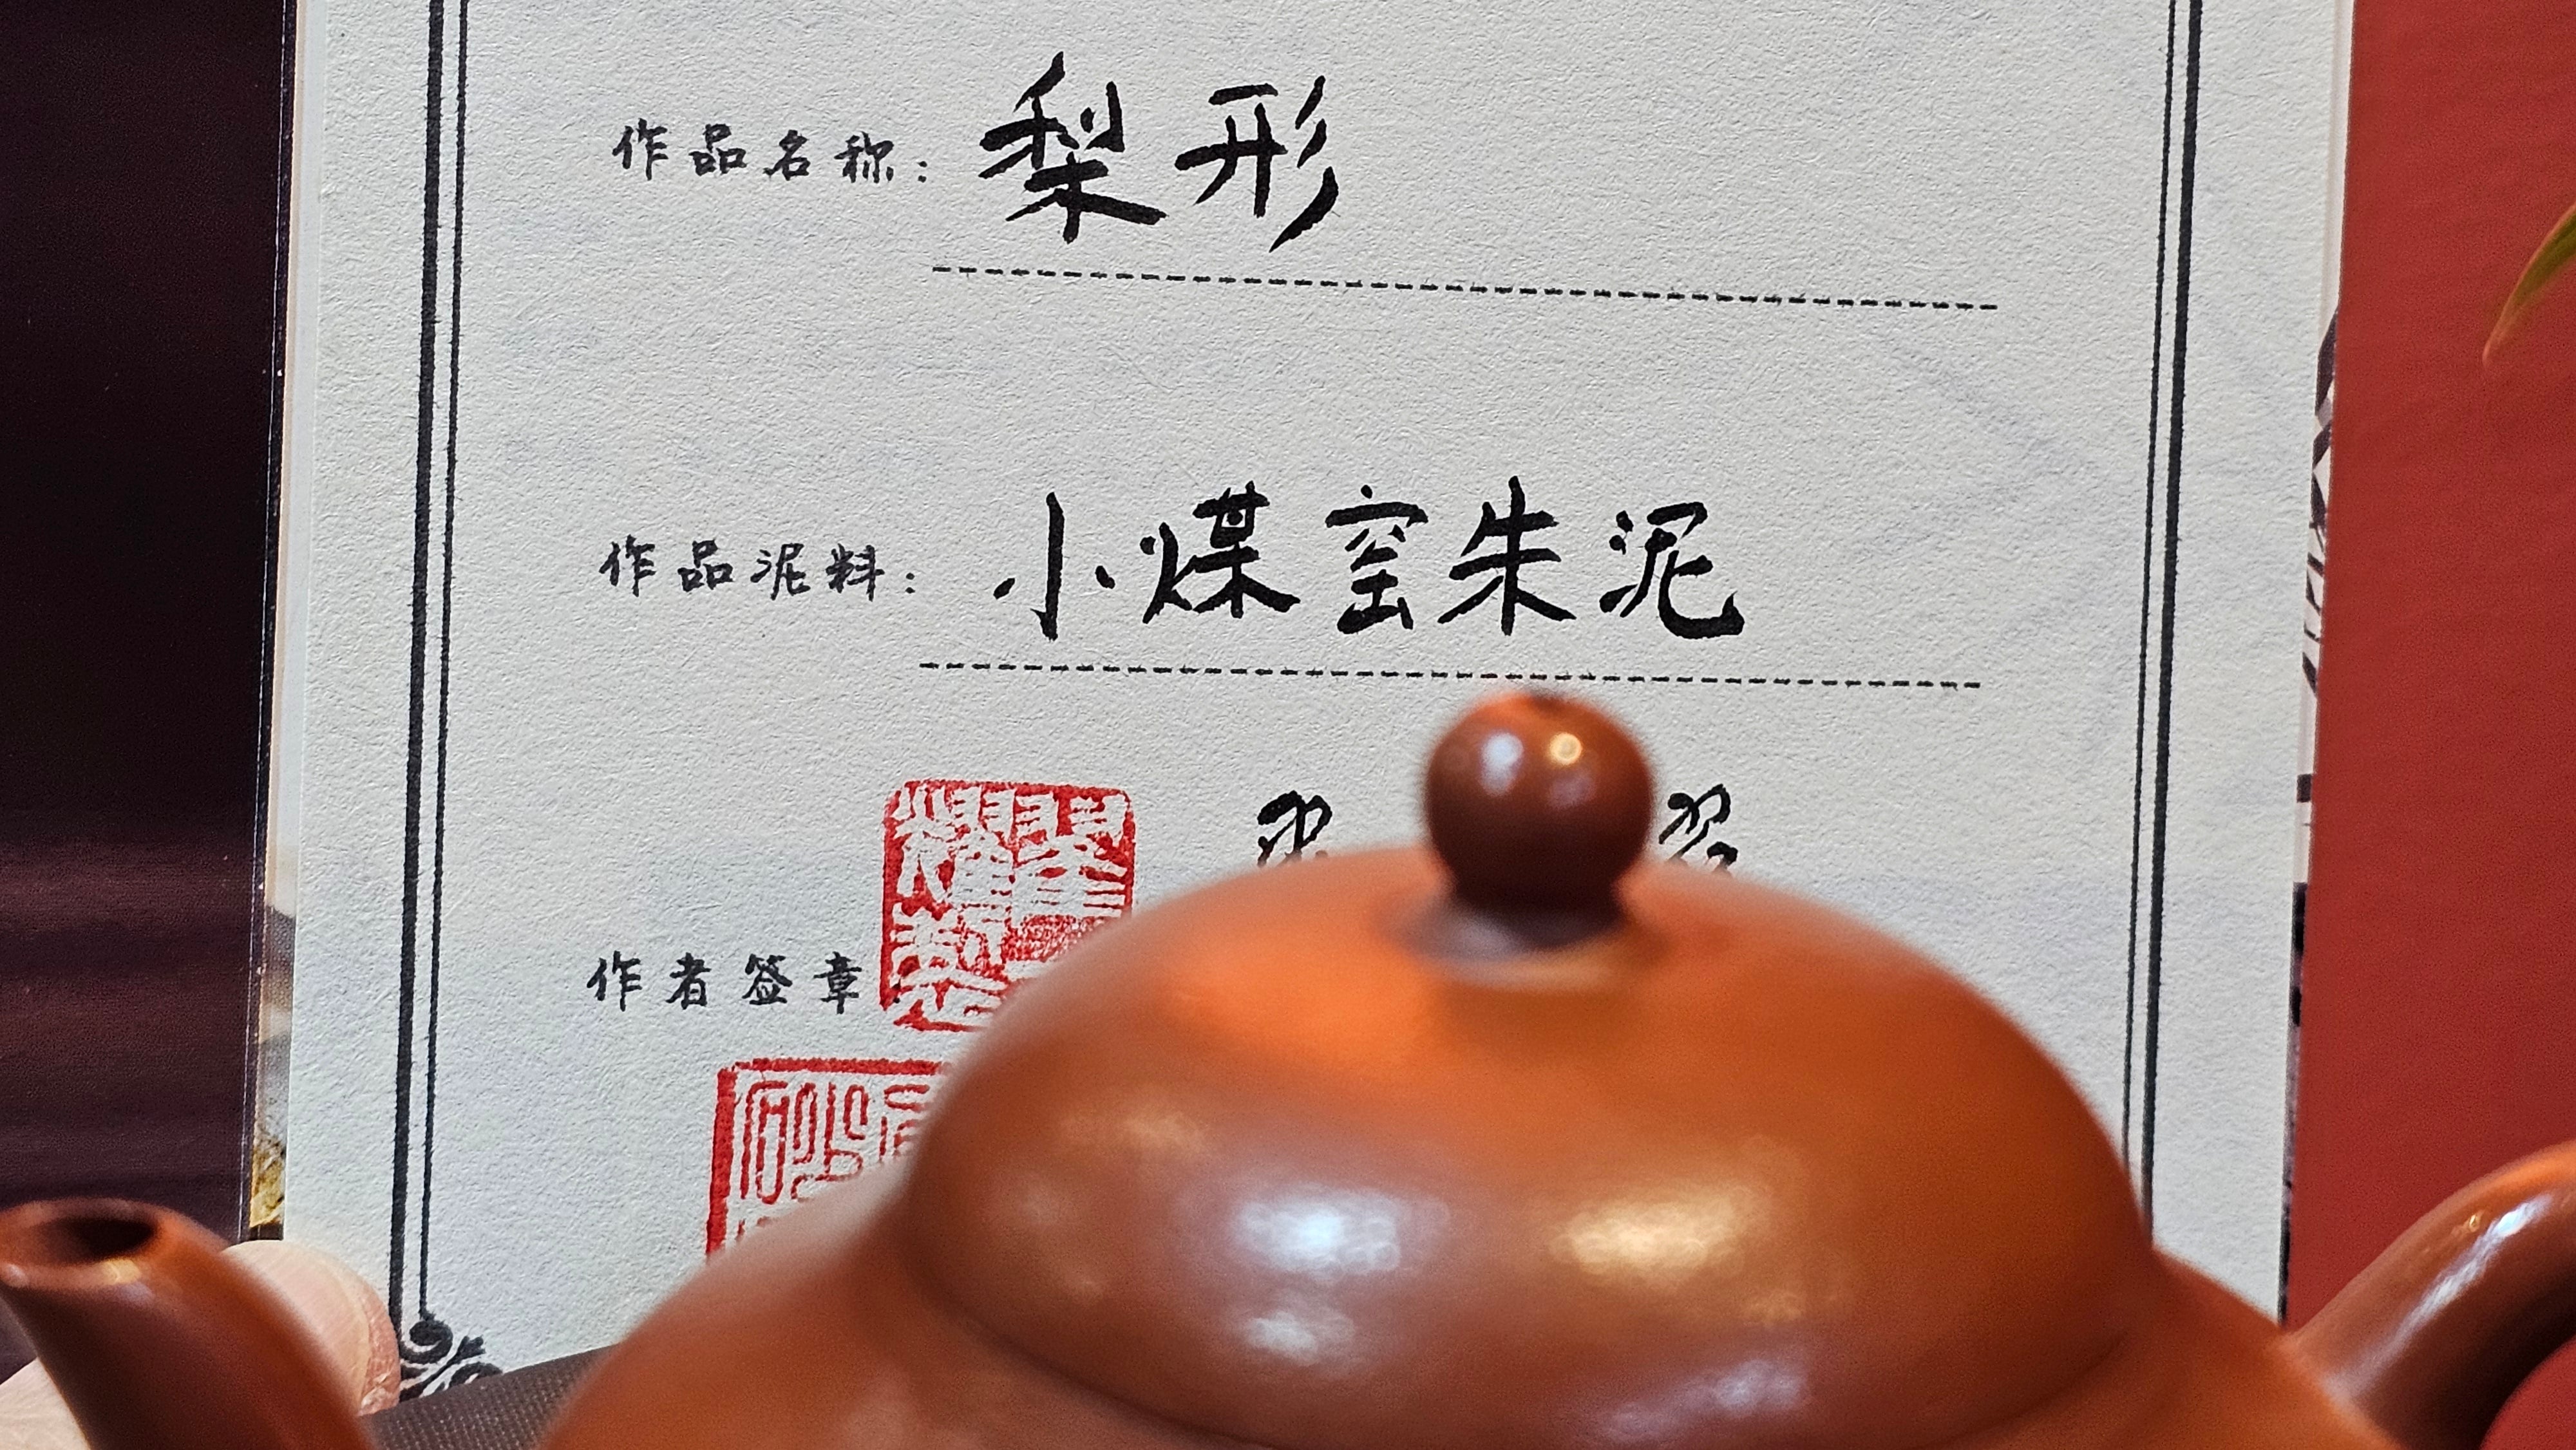 作品名称：梨形
作品泥料：小煤窑朱泥
作者签章